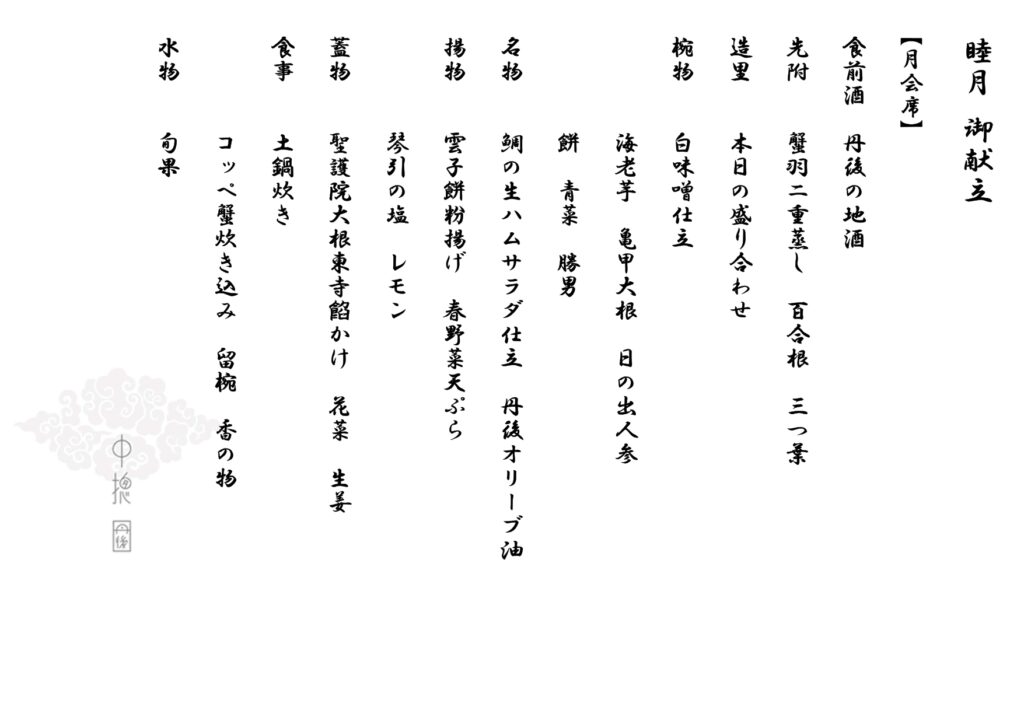 睦月 御献立
【月会席】
食前酒 丹後の地酒
先附 蟹羽二重蒸し 百合根 三つ葉
造里 本日の盛り合わせ
椀物 白味噌仕立
海老芋 亀甲大根 日の出人参
餅 青菜 勝男
名物 鯛の生ハムサラダ仕立 丹後オリーブ油
揚物 雲子餅粉揚げ 春野菜天ぷら
琴引の塩 レモン
蓋物 聖護院大根東寺餡かけ 花菜 生姜
食事 土鍋炊き
コッペ蟹炊き込み 留椀 香の物
水物 旬果
丹後